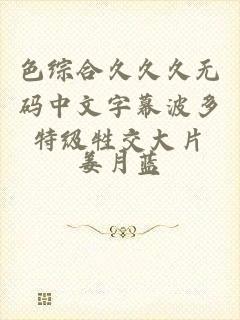 色综合久久久无
码中文字幕波多
特级牲交大片
姜月蓝